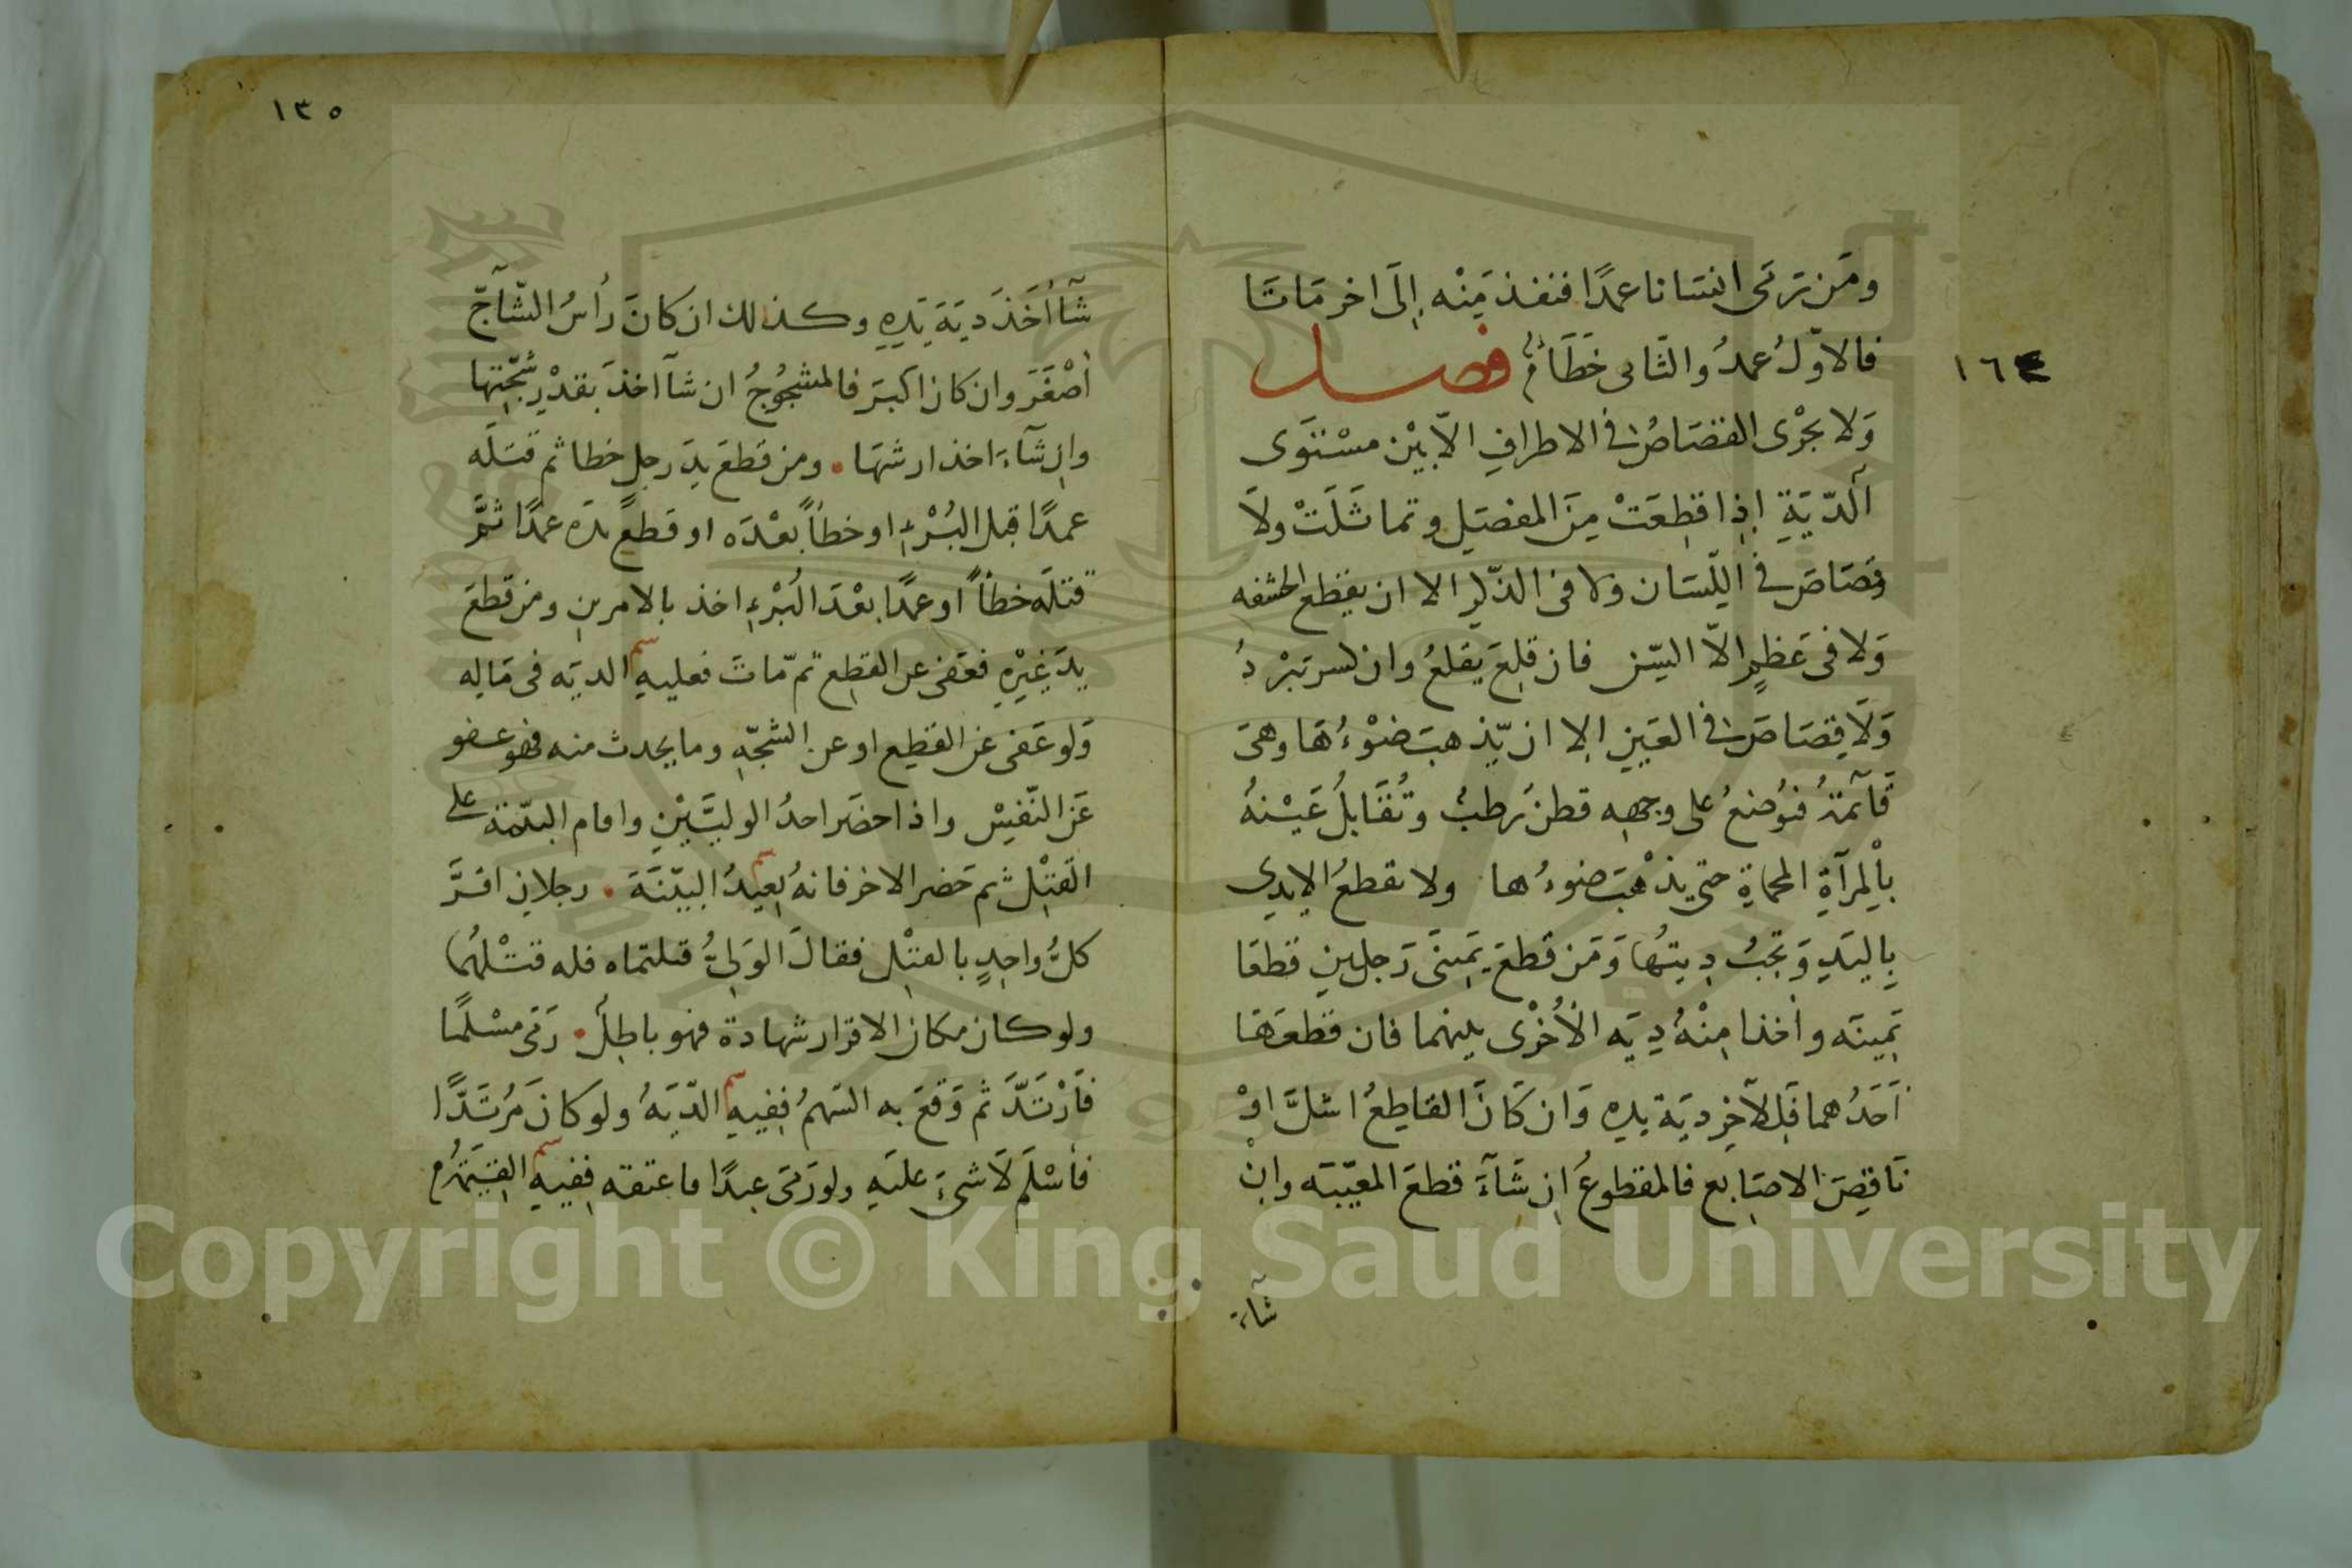 ومَن رَمَى انسَانا عمدًا فنفذ مِنْه إلَى اخر مَاتَا
فالاوّلُ عمدُ والثّانى خَطَاءٌ فصل
وَلا يجْرى القصَاصُ فى الاطرافِ الاّ بَيْن مسْتَوَى
الدّيَةِ إذا قطِعَتْ مِنَ المفصَلِ وتماثَلَتْ ولاَ
قصَاصَ فى اللّسَان ولا فى الذّكر الا ان يقطع الحشفه
وَلا فى عَظمٍ الاّ السِّن فان قلِعَ يقلعُ وان كسر تبْردُ
وَلَا قِصَاصَ فى العَينِ الا ان يّذهبَ ضَوْءُهَا وهىَ
قَآئمةُ فيُوضعُ على وجهه قطنُ رطبُ وتُقَابلُ عَيْنهُ
بالمرآةِ المحماةِ حتى يذْهَبَ ضوءُها ولا تقطعُ الايدى
بِاليَدِ وَتجبُ دِيتُها وَمَن قطعَ يَمِينَى رَجلينِ قطعَا
يَمِينَه وأخذا مِنْهُ دِيَه الأُخْرى بينهما فان قطعَهَا
اَحَدُهما فَللآخِرِ ديَة يدِه وَان كَانَ القاطِعُ اشلَّ اوْ
نَاقِصَ الاصَابع فالمقطوعُ ان شَآءَ قطعَ المعَيبَه وانْ
شآء
١٦٤
١٣٥
شَآ أخَذَ ديَةَ يَدِهِ وكذلك ان كانَ رأسُ الشّآجّ
أصْغَرَ وان كان اكبَرَ فالمشجُوجُ ان شآ اخذَ بقدْرِ شجّتِها
وان شآءَ اخذ ارشهَا ۰ ومن قطعَ يدَ رجلٍ خطا ثم قتلَه
عمدًا قبل البُرْءِ او خطأً بعْدَه او قطعَ يدَه عمدًا ثمَّ
قتلَه خطأً او عمدًا بعْدَ البُرْءِ اخذ بالامرينِ ومن قطعَ
يدَ غيْرِهِ فعَفى عن القطِع ثمّ مّاتَ فعليهِ الديَه فى مَالِه
وَلو عَفى عن القطِع او عن الشجّهِ وما يحدث منه فهو عفو
عَن النّفِسْ واذا حضَر احدُ الوليَّيْنِ واقام البيّنة على
القتْلِ ثم حَضر الاخر فانهُ يُعيدُ البيّنَّةَ ۰ رجلان اقرَّ
كلُّ واحدٍ بالقتْلِ فقالَ الوَلىُّ قتلتماه فله قتْلهُما
ولو كان مكان الاقرار شهادة فهو باطِلُ ۰ رَمى مسْلمًا
فَارْتَدَّ ثم وَقعَ به السّهمُ ففِيهِ الدّيَهُ ولو كانَ مُرتَدًّا
فأسْلَم لاَ شىءَ عليَهِ ولو رَمَى عبدًا فاعتقه ففِيهِ القيَمةُ